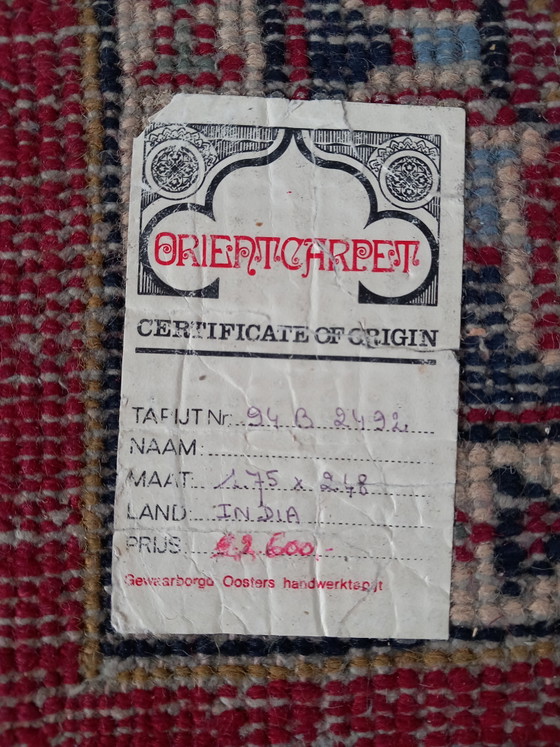 ORIENTCARPET
CERTIFICATE OF ORIGIN
TAPIJT Nr. 94 B 2492
NAAM:
MAAT: 175 x 248
LAND: INDIA
PRIJS
Gewaarborgd Oosters handwerktapijt